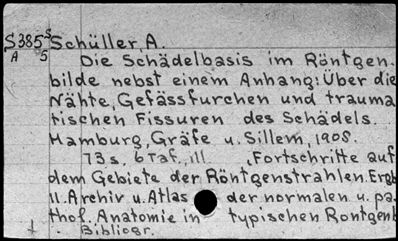 S385 S Schüller, A.
A 5 Die Schädelbasis im Röntgen.
bilde nebst einem Anhang: Über die
Nähte, Gefässfurchen und trauma
tischen Fissuren des Schädels.
Hamburg, Gräfe u. Sillem, 1908.
73 s, 6 Taf., ill. (Fortschritte auf
dem Gebiete der Röntgenstrahlen. Ergb
11. Archiv u. Atlas der normalen u. pa
thol. Anatomie in typischen Rontgenb
Bibliogr.